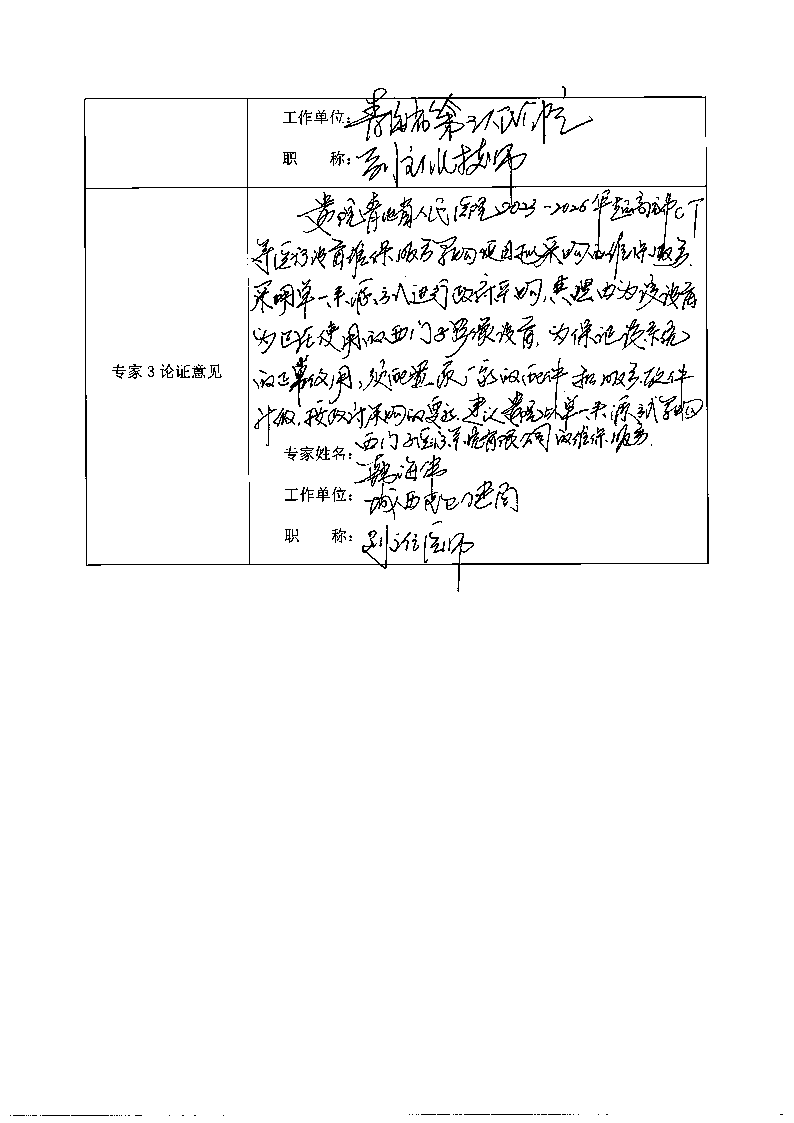 工作单位：青海省第三人民医院
职　　称：副主任技师
贵院青海省人民医院2023-2026年超高端CT
等医疗设备维保服务采购项目拟采购的维保服务
采用单一来源方式进行政府采购，其理由为该设备
为已在使用的西门子影像设备，为保证该系统
的正常使用，须配置原厂家的配件和服务、软件
升级，按政府采购的要求，建议贵院以单一来源方式采购
西门子医疗系统有限公司的维保服务。
专家3论证意见
专家姓名：海
工作单位：城西区卫健局
职　　称：副主任医师